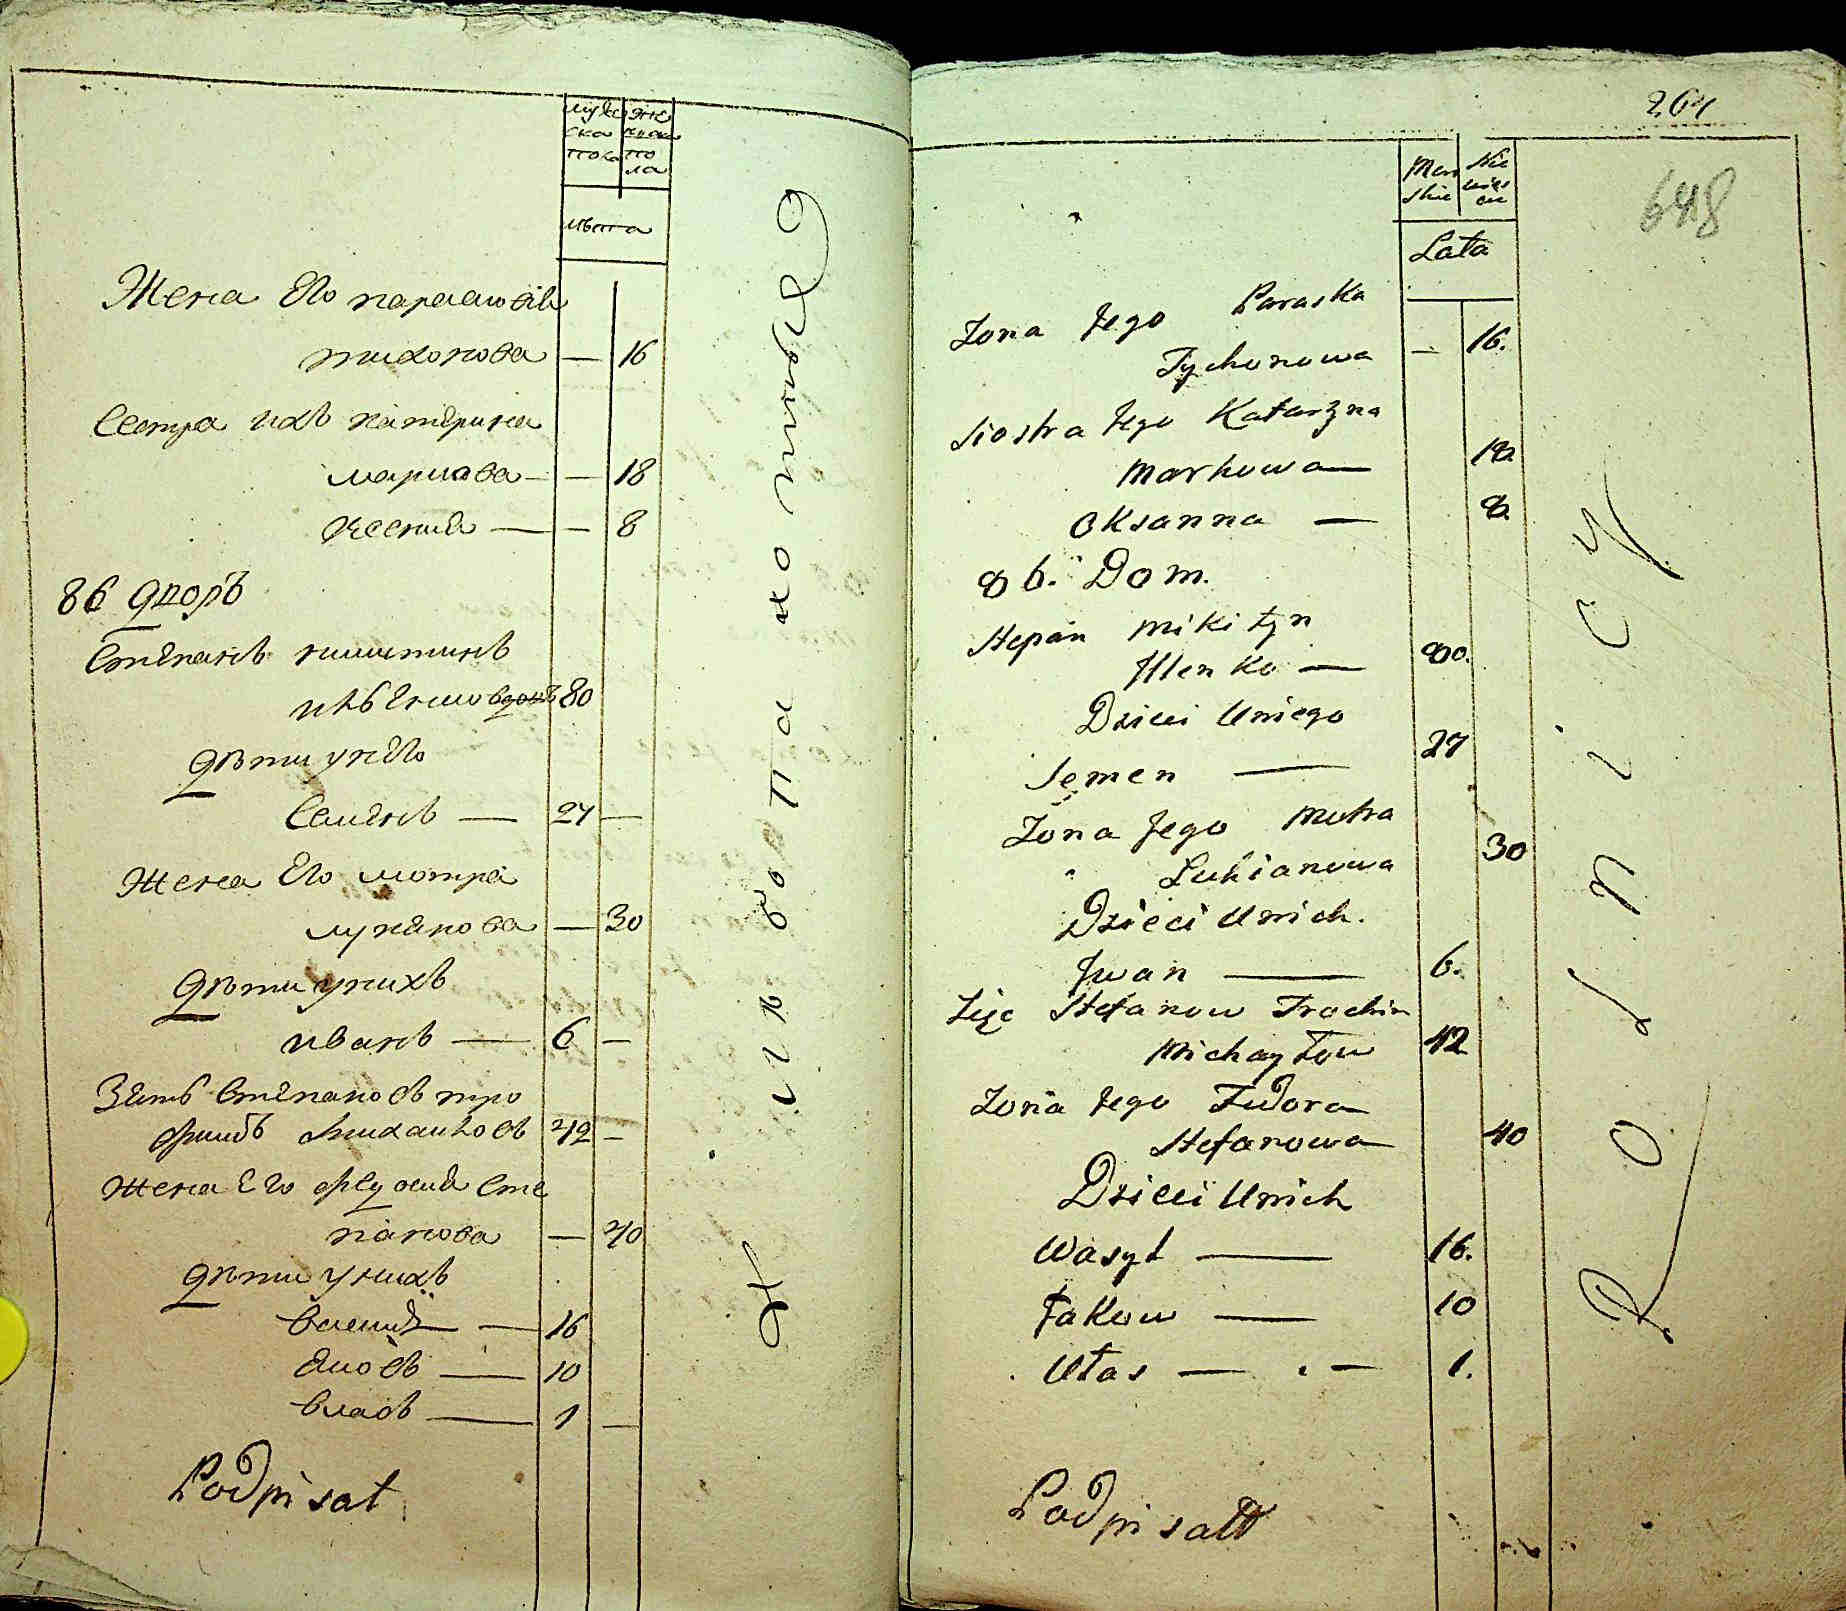 муже ска пола
жеенска по ла
лѣта
Жена Его параскѣвіа
тихонова — 16
Сестра ихъ катерина
маркова — — 18
ксенія — — 8
86 дворъ
Степанъ никитинъ
80
дѣти унего
Семенъ — 27 —
Жена Его мотра
лукянова — 30
дѣти унихъ
иванъ — 6 —
Зять Степановъ тро
фимъ михаиловъ 42 —
жена Его федосия Сте
панова — 40
дѣти унихъ
василій — 16
яковъ — 10
власъ — 1 —
Podpisał
264
648
Męs skie
Nie wies cie
Lata
Zona Jego Paraska
Tychonowa — 16.
Siostra Jego Katarzyna
Markowa — 18
Oksanna — 8
86. Dom.
Stepan Mikityn
Ilenko — 80.
Dzieci Uniego
Semen — 27
Zona Jego Motra
Lukianowa 30
Dzieci Unich.
Jwan — 6.
Zięc Stefanow Trochim
Michayłow 42
Zona Jego Fudora
Stefanowa 40
Dzieci Unich
Wasyl — 16.
Jakow — 10
Ułas — — 1.
Podpisałł
R o l n i c y